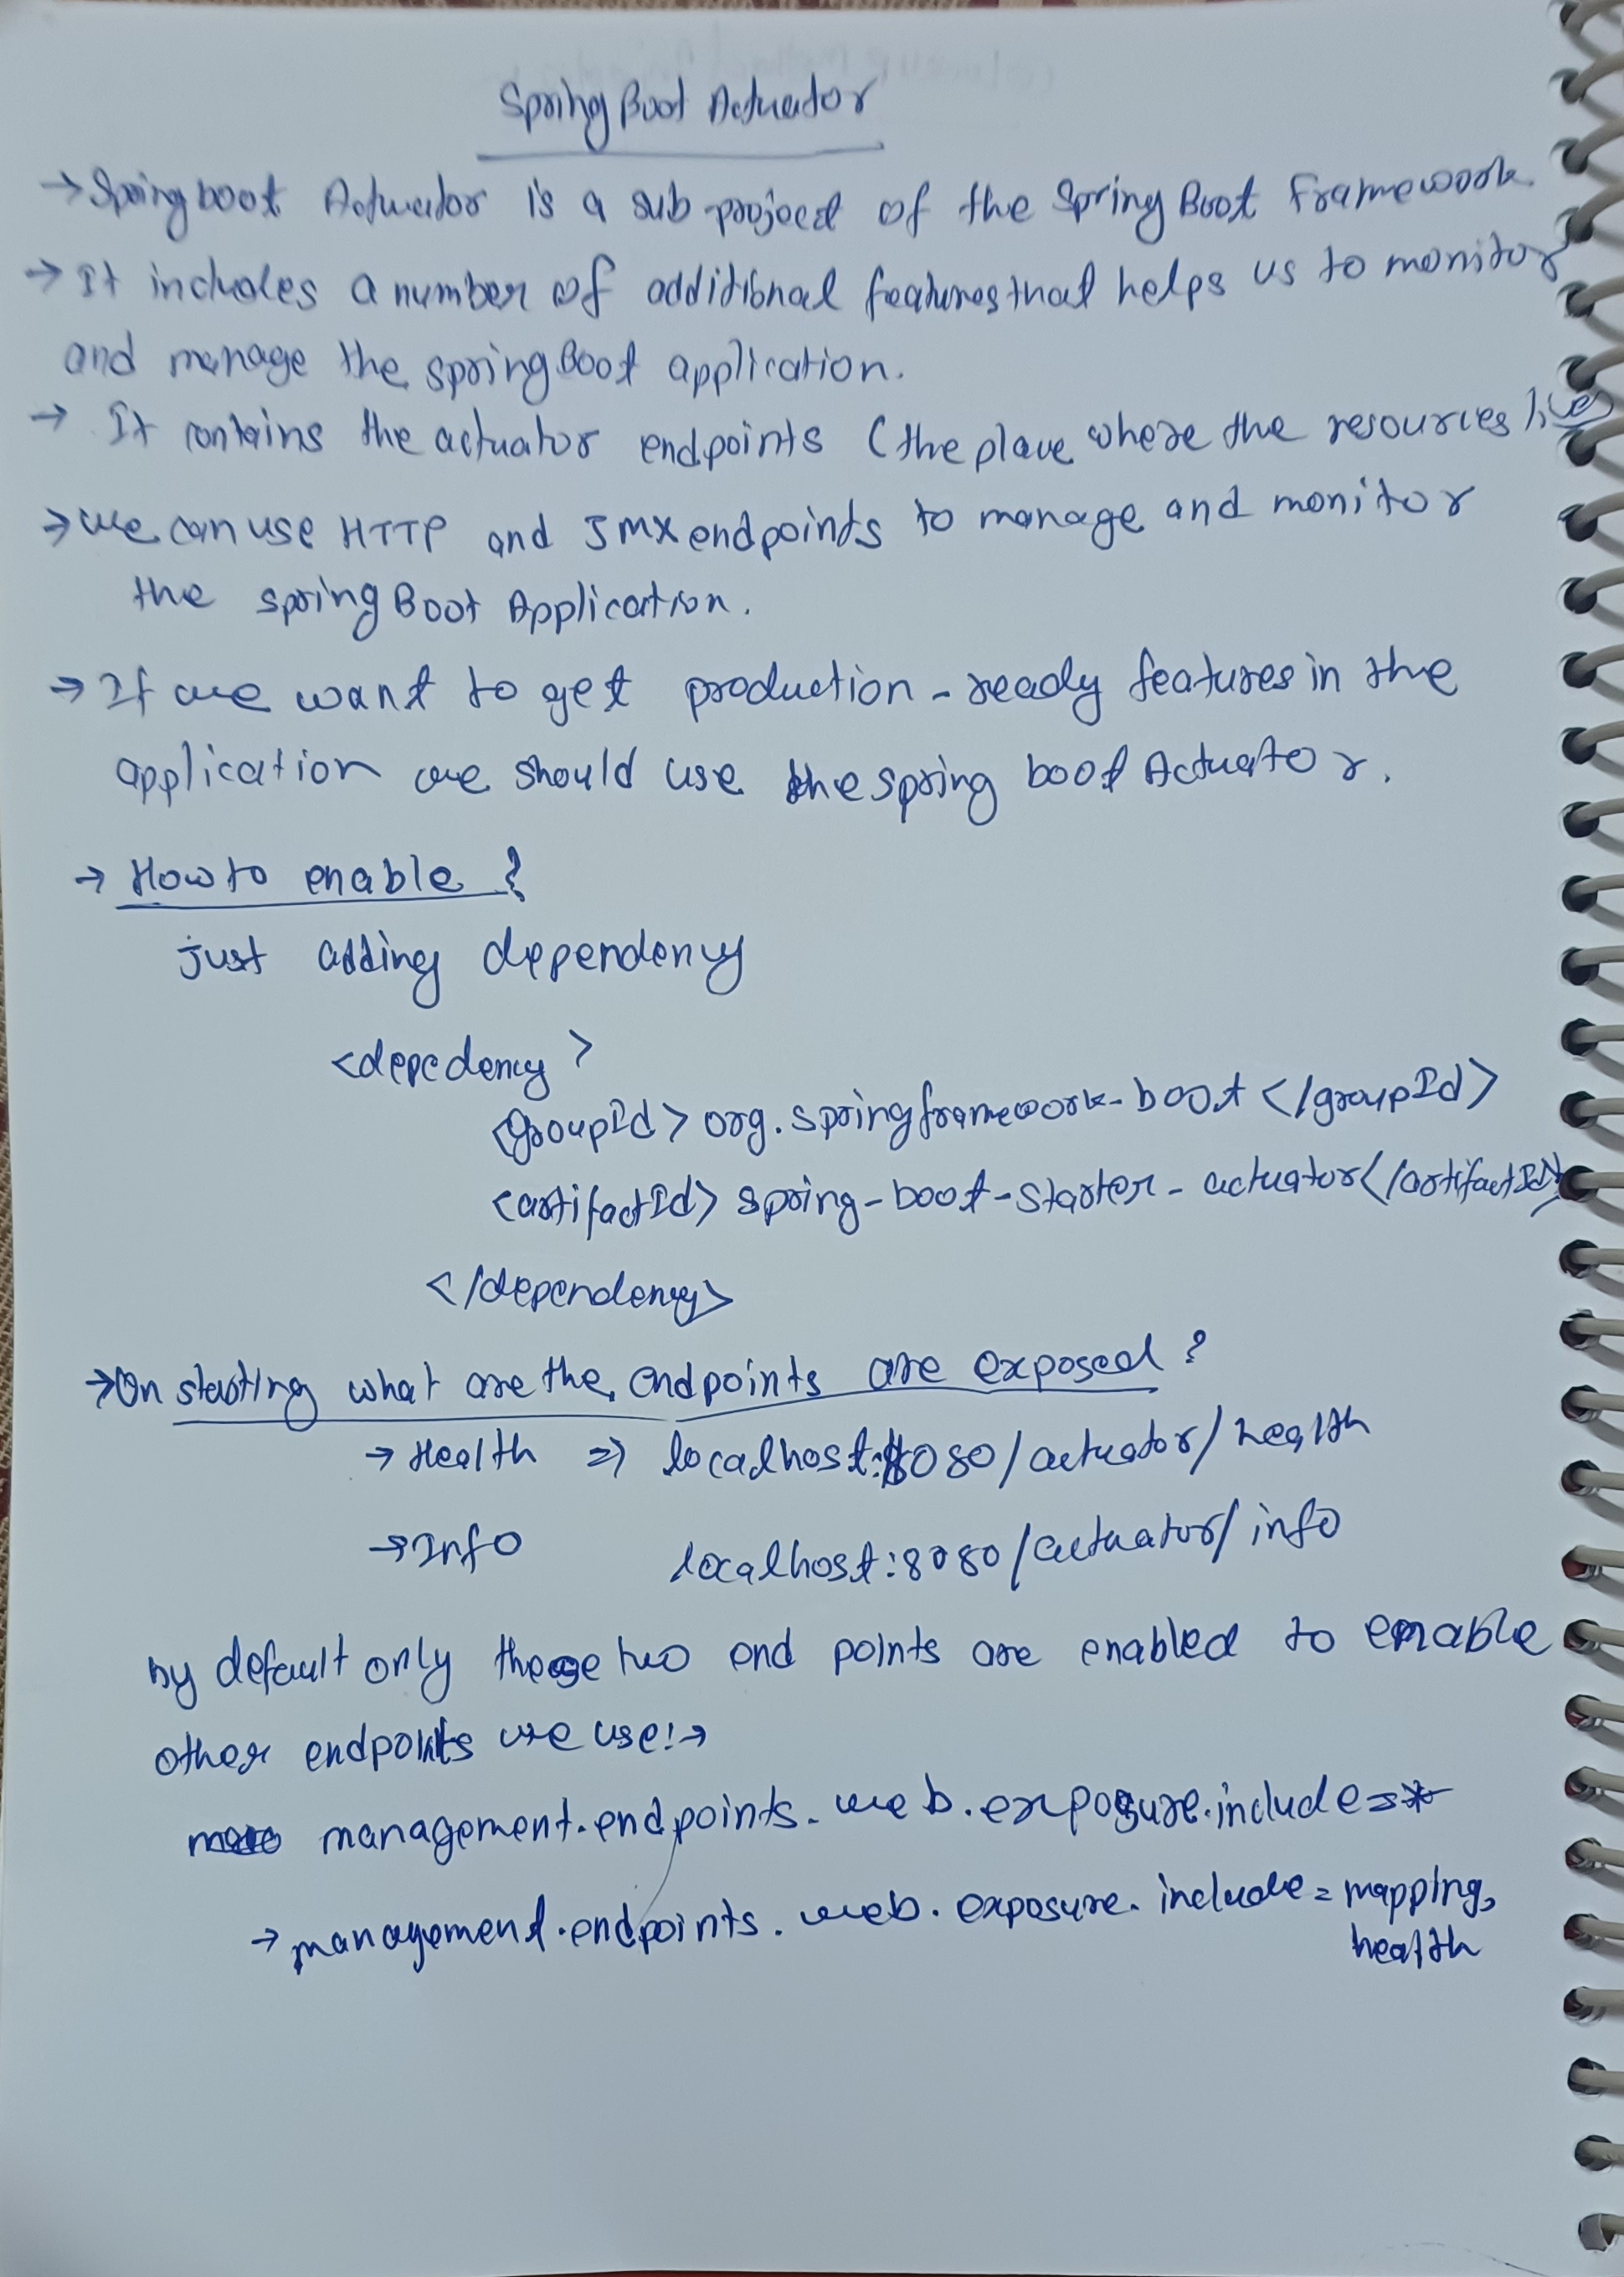 Spring Boot Actuator
→ Spring boot Actuator is a sub-project of the Spring Boot Framework.
→ It includes a number of additional features that helps us to monitor
and manage the spring Boot application.
→ It contains the actuator endpoints (the place where the resources lives)
→ we can use HTTP and JMX endpoints to manage and monitor
the spring Boot Application.
→ If we want to get production-ready features in the
application we should use the spring boot Actuator.
→ How to enable ?
just adding dependency
<depedency >
<groupId> org.springframework-boot </groupId>
<artifactId> spring-boot-starter-actuator</artifactId>
</dependency>
→ On starting what are the endpoints are exposed ?
→ Health ⇒ localhost:8080/actuator/health
→ Info localhost:8080/actuator/info
by default only these two end points are enabled to enable
other endpoints we use:→
management.endpoints.web.exposure.include=*
→ management.endpoints.web.exposure.include=mapping,
health